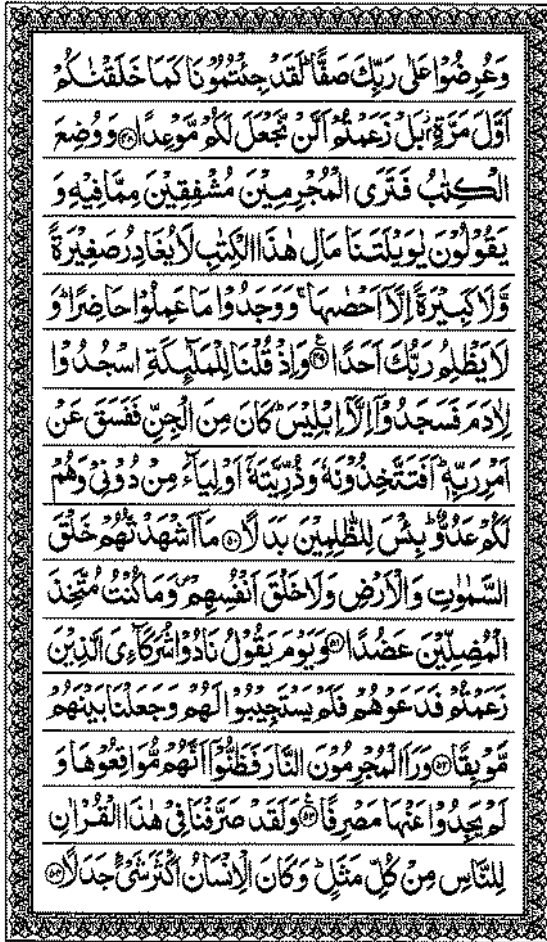 وَعُرِضُوْا عَلٰى رَبِّكَ صَفًّا ؕ لَقَدْ جِئْتُمُوْنَا كَمَا خَلَقْنٰكُمْ
اَوَّلَ مَرَّةٍۭ ؗ بَلْ زَعَمْتُمْ اَلَّنْ نَّجْعَلَ لَكُمْ مَّوْعِدًا ﴿۴۸﴾ وَوُضِعَ
الْكِتٰبُ فَتَرَى الْمُجْرِمِيْنَ مُشْفِقِيْنَ مِمَّا فِيْهِ وَ
يَقُوْلُوْنَ يٰوَيْلَتَنَا مَالِ هٰذَا الْكِتٰبِ لَا يُغَادِرُ صَغِيْرَةً
وَّلَا كَبِيْرَةً اِلَّاۤ اَحْصٰىهَا ۚ وَوَجَدُوْا مَا عَمِلُوْا حَاضِرًا ؕ وَ
لَا يَظْلِمُ رَبُّكَ اَحَدًا ﴿۴۹﴾ۧ وَاِذْ قُلْنَا لِلْمَلٰٓئِكَةِ اسْجُدُوْا
لِاٰدَمَ فَسَجَدُوْۤا اِلَّاۤ اِبْلِيْسَ ؕ كَانَ مِنَ الْجِنِّ فَفَسَقَ عَنْ
اَمْرِ رَبِّهٖ ؕ اَفَتَتَّخِذُوْنَهٗ وَذُرِّيَّتَهٗۤ اَوْلِيَآءَ مِنْ دُوْنِيْ وَهُمْ
لَكُمْ عَدُوٌّ ؕ بِئْسَ لِلظّٰلِمِيْنَ بَدَلًا ﴿۵۰﴾ مَاۤ اَشْهَدْتُّهُمْ خَلْقَ
السَّمٰوٰتِ وَالْاَرْضِ وَلَا خَلْقَ اَنْفُسِهِمْ ۪ وَمَا كُنْتُ مُتَّخِذَ
الْمُضِلِّيْنَ عَضُدًا ﴿۵۱﴾ وَيَوْمَ يَقُوْلُ نَادُوْا شُرَكَآءِيَ الَّذِيْنَ
زَعَمْتُمْ فَدَعَوْهُمْ فَلَمْ يَسْتَجِيْبُوْا لَهُمْ وَجَعَلْنَا بَيْنَهُمْ
مَّوْبِقًا ﴿۵۲﴾ وَرَاَ الْمُجْرِمُوْنَ النَّارَ فَظَنُّوْۤا اَنَّهُمْ مُّوَاقِعُوْهَا وَ
لَمْ يَجِدُوْا عَنْهَا مَصْرِفًا ﴿۵۳﴾ۧ وَلَقَدْ صَرَّفْنَا فِيْ هٰذَا الْقُرْاٰنِ
لِلنَّاسِ مِنْ كُلِّ مَثَلٍ ؕ وَكَانَ الْاِنْسَانُ اَكْثَرَ شَيْءٍ جَدَلًا ﴿۵۴﴾